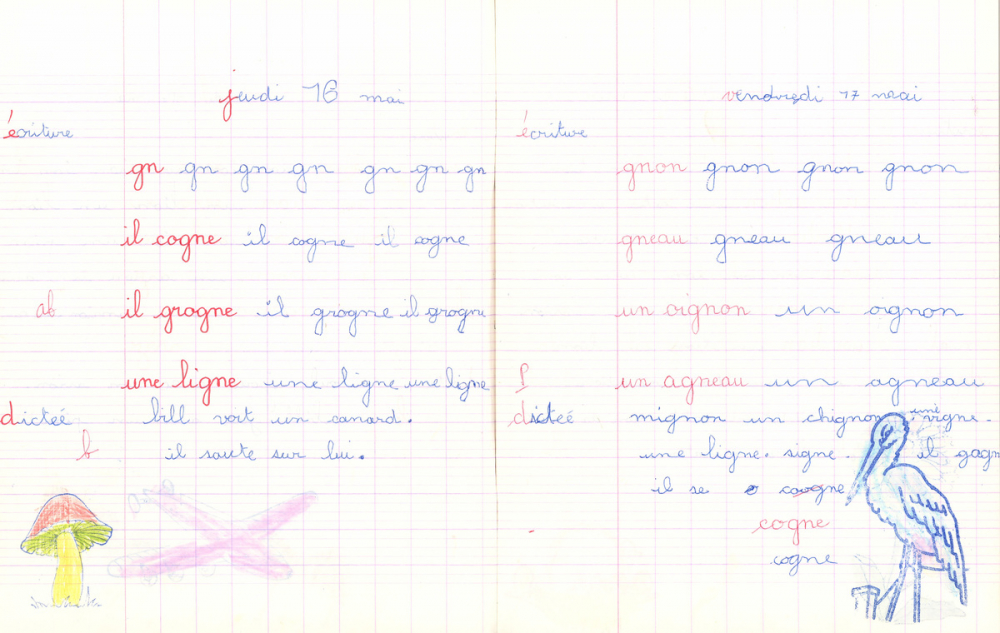 jeudi 16 mai
écriture
gn gn gn gn gn gn gn
il cogne il cogne il cogne
ab il grogne il grogne il grogne
une ligne une ligne une ligne
dicteé bill voit un canard.
b il saute sur lui.
vendredi 17 mai
écriture
gnon gnon gnon gnon
gneau gneau gneau
un oignon un ognon
un agneau un agneau
dicteé mignon un chignon une vigne.
une ligne. signe. il gagn
il se cogne
cogne
cogne